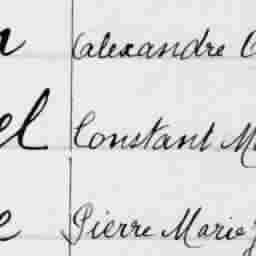 n Alexandre
el Constant M
e Pierre Marie J